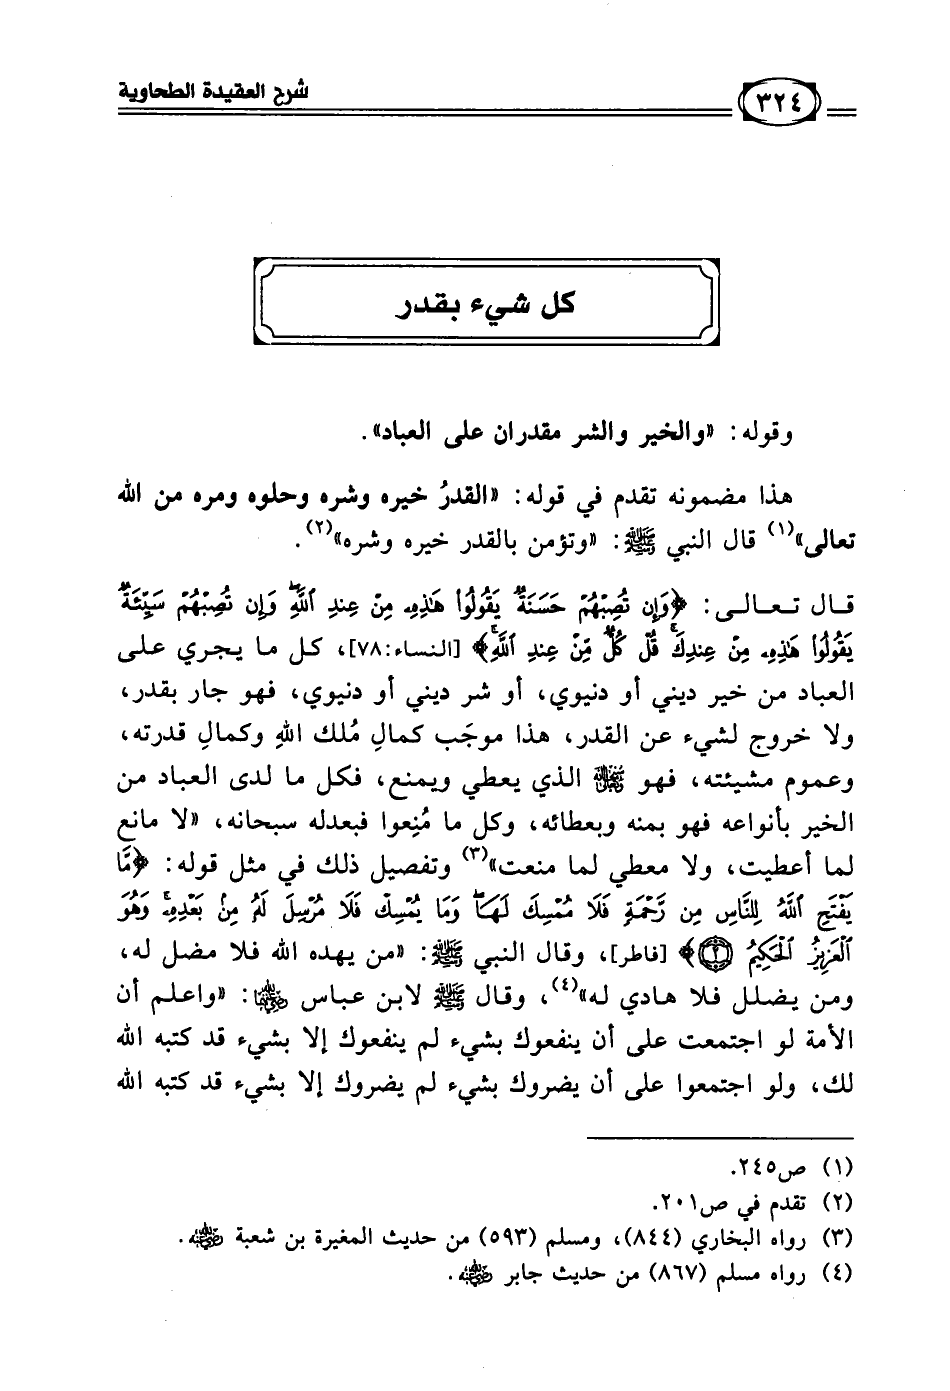 شرح العقيدة الطحاوية
٣٢٤
كل شيء بقدر
وقوله: «والخير والشر مقدران على العباد».
هذا مضمونه تقدم في قوله: «القدرُ خيره وشره وحلوه ومره من الله
تعالى»(١) قال النبي ﷺ: «وتؤمن بالقدر خيره وشره»(٢).
قال تعالى: ﴿وَإِن تُصِبْهُمْ حَسَنَةٌ يَقُولُوا۟ هَٰذِهِۦ مِنْ عِندِ ٱللَّهِۖ وَإِن تُصِبْهُمْ سَيِّئَةٌ
يَقُولُوا۟ هَٰذِهِۦ مِنْ عِندِكَۚ قُلْ كُلٌّ مِّنْ عِندِ ٱللَّهِۚ﴾ [النساء:٧٨]، كل ما يجري على
العباد من خير ديني أو دنيوي، أو شر ديني أو دنيوي، فهو جار بقدر،
ولا خروج لشيء عن القدر، هذا موجَب كمالِ مُلك اللهِ وكمالِ قدرته،
وعموم مشيئته، فهو ﷻ الذي يعطي ويمنع، فكل ما لدى العباد من
الخير بأنواعه فهو بمنه وبعطائه، وكل ما مُنِعوا فبعدله سبحانه، «لا مانع
لما أعطيت، ولا معطي لما منعت»(٣) وتفصيل ذلك في مثل قوله: ﴿مَّا
يَفْتَحِ ٱللَّهُ لِلنَّاسِ مِن رَّحْمَةٍ فَلَا مُمْسِكَ لَهَاۖ وَمَا يُمْسِكْ فَلَا مُرْسِلَ لَهُۥ مِنۢ بَعْدِهِۦۚ وَهُوَ
ٱلْعَزِيزُ ٱلْحَكِيمُ ٢﴾ [فاطر]، وقال النبي ﷺ: «من يهده الله فلا مضل له،
ومن يضلل فلا هادي له»(٤)، وقال ﷺ لابن عباس رضي الله عنهما: «واعلم أن
الأمة لو اجتمعت على أن ينفعوك بشيء لم ينفعوك إلا بشيء قد كتبه الله
لك، ولو اجتمعوا على أن يضروك بشيء لم يضروك إلا بشيء قد كتبه الله
(١) ص٢٤٥.
(٢) تقدم في ص٢٠١.
(٣) رواه البخاري (٨٤٤)، ومسلم (٥٩٣) من حديث المغيرة بن شعبة رضي الله عنه.
(٤) رواه مسلم (٨٦٧) من حديث جابر رضي الله عنه.